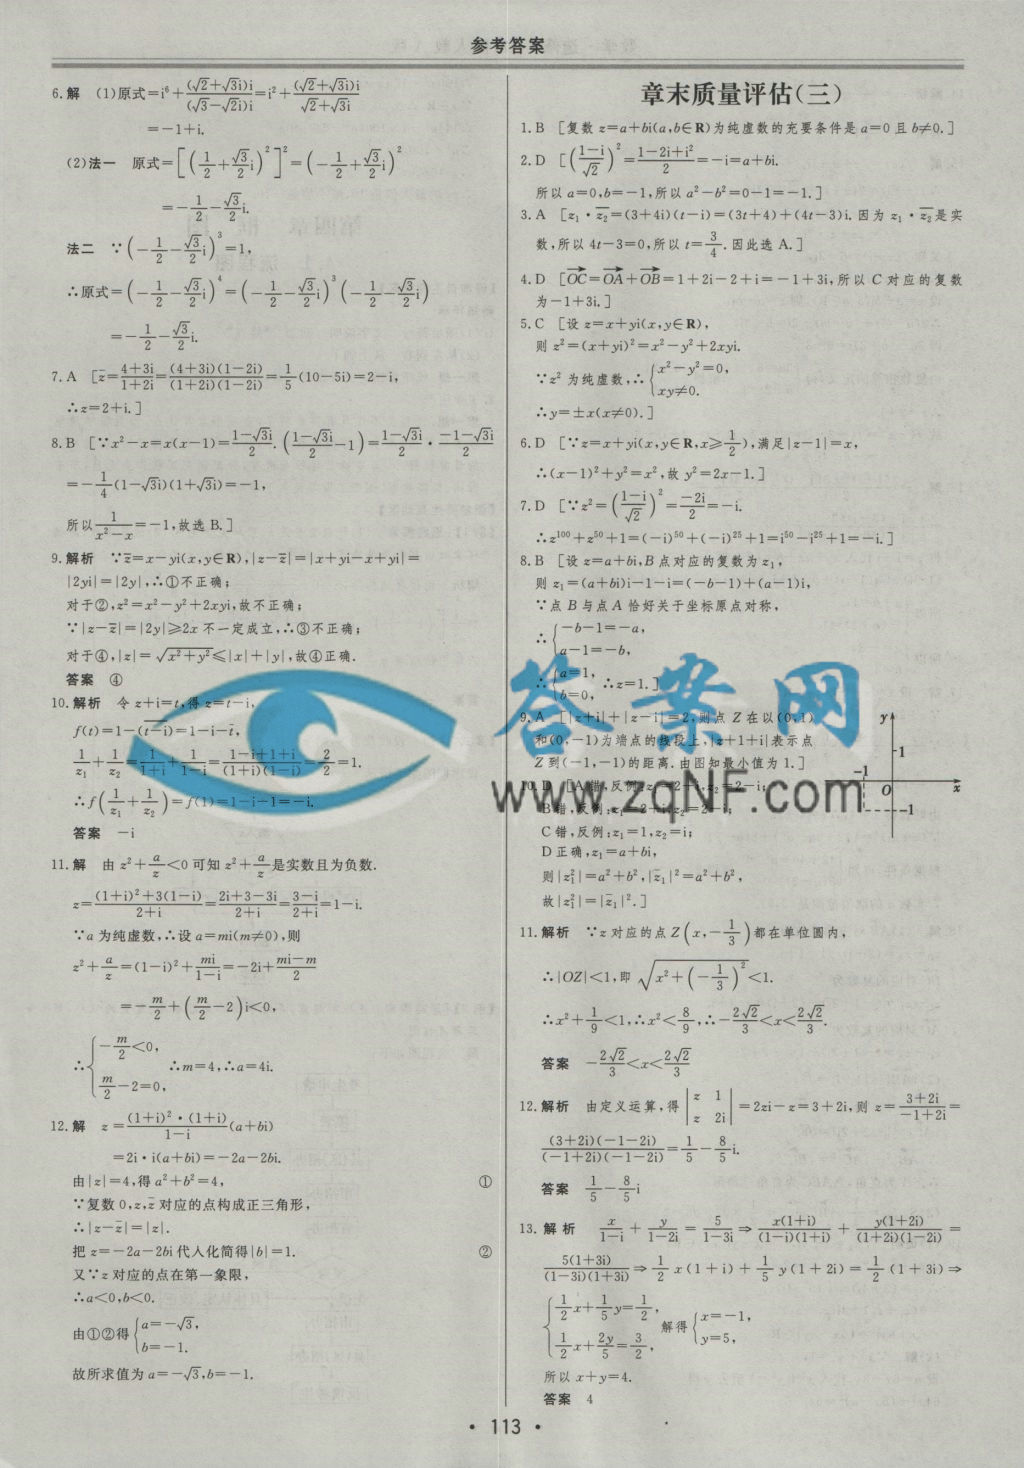 参考答案
6.解 (1)原式=i⁶+(√2+√3i)i/(√3-√2i)i=i²+(√2+√3i)i/√2+√3i
=-1+i.
(2)法一 原式=[(1/2+√3/2i)²]²=(-1/2+√3/2i)²
=-1/2-√3/2i.
法二 ∵(-1/2-√3/2i)³=1,
∴原式=(-1/2-√3/2i)⁴=(-1/2-√3/2i)³(-1/2-√3/2i)
=-1/2-√3/2i.
7.A [z̄=4+3i/1+2i=(4+3i)(1-2i)/(1+2i)(1-2i)=1/5(10-5i)=2-i,
∴z=2+i.]
8.B [∵x²-x=x(x-1)=1-√3i/2.(1-√3i/2-1)=1-√3i/2·-1-√3i/2
=-1/4(1-√3i)(1+√3i)=-1,
所以1/x²-x=-1,故选B.]
9.解析 ∵z̄=x-yi(x,y∈R),|z-z̄|=|x+yi-x+yi|=
|2yi|=|2y|,∴①不正确;
对于②,z²=x²-y²+2xyi,故不正确;
∵|z-z̄|=|2y|≥2x不一定成立,∴③不正确;
对于④,|z|=√x²+y²≤|x|+|y|,故④正确.
答案 ④
10.解析 令z+i=t,得z=t-i,
f(t)=1-(t-i)=1-i-t̄,
1/z₁+1/z₂=1/1+i+1/1-i=1-i+1+i/(1+i)(1-i)=2/2=1.
∴f(1/z₁+1/z₂)=f(1)=1-i-1=-i.
答案 -i
11.解 由z²+a/z<0可知z²+a/z是实数且为负数.
z=(1+i)²+3(1-i)/2+i=2i+3-3i/2+i=3-i/2+i=1-i.
∵a为纯虚数,∴设a=mi(m≠0),则
z²+a/z=(1-i)²+mi/1-i=-2i+mi-m/2
=-m/2+(m/2-2)i<0,
∴{-m/2<0, m/2-2=0, ∴m=4,∴a=4i.
12.解 z=(1+i)²·(1+i)/1-i(a+bi)
=2i·i(a+bi)=-2a-2bi.
由|z|=4,得a²+b²=4, ①
∵复数0,z,z̄对应的点构成正三角形,
∴|z-z̄|=|z|.
把z=-2a-2bi代人化简得|b|=1. ②
又∵z对应的点在第一象限,
∴a<0,b<0.
由①②得{a=-√3, b=-1.
故所求值为a=-√3,b=-1.
章末质量评估(三)
1.B [复数z=a+bi(a,b∈R)为纯虚数的充要条件是a=0且b≠0.]
2.D [(1-i/√2)²=1-2i+i²/2=-i=a+bi.
所以a=0,b=-1,所以a²-b²=0-1=-1.]
3.A [z₁·z̄₂=(3+4i)(t-i)=(3t+4)+(4t-3)i.因为z₁·z̄₂是实
数,所以4t-3=0,所以t=3/4.因此选A.]
4.D [OC=OA+OB=1+2i-2+i=-1+3i,所以C对应的复数
为-1+3i.]
5.C [设z=x+yi(x,y∈R),
则z²=(x+yi)²=x²-y²+2xyi.
∵z²为纯虚数,∴{x²-y²=0, xy≠0.
∴y=±x(x≠0).]
6.D [∵z=x+yi(x,y∈R,x≥1/2),满足|z-1|=x,
∴(x-1)²+y²=x²,故y²=2x-1.]
7.D [∵z²=(1-i/√2)²=-2i/2=-i.
∴z¹⁰⁰+z⁵⁰+1=(-i)⁵⁰+(-i)²⁵+1=i⁵⁰-i²⁵+1=-i.]
8.B [设z=a+bi,B点对应的复数为z₁,
则z₁=(a+bi)i-1-i=(-b-1)+(a-1)i,
∵点B与点A恰好关于坐标原点对称,
∴{-b-1=-a, a-1=-b,
∴{a=1, b=0, ∴z=1.]
9.A [|z+i|+|z-i|=2,则点Z在以(0,1)
和(0,-1)为端点的线段上,|z+1+i|表示点
Z到(-1,-1)的距离.由图知最小值为1.]
y
1
-1
O
x
-1
10.D [A错,反例:z₁=2+i,z₂=2-i;
B错,反例:z₁=2+i,z₂=2-i;
C错,反例:z₁=1,z₂=i;
D正确,z₁=a+bi,
则|z₁²|=a²+b²,|z̄₁|²=a²+b²,
故|z₁²|=|z̄₁|².]
11.解析 ∵z对应的点Z(x,-1/3)都在单位圆内,
∴|OZ|<1,即√x²+(-1/3)²<1.
∴x²+1/9<1,∴x²<8/9,∴-2√2/3<x<2√2/3.
答案 -2√2/3<x<2√2/3
12.解析 由定义运算,得|z 1 z 2i|=2zi-z=3+2i,则z=3+2i/-1+2i=
(3+2i)(-1-2i)/(-1+2i)(-1-2i)=1/5-8/5i.
答案 1/5-8/5i
13.解析 x/1-i+y/1-2i=5/1-3i⇒x(1+i)/(1-i)(1+i)+y(1+2i)/(1+2i)(1-2i)=
5(1+3i)/(1-3i)(1+3i)⇒1/2x(1+i)+1/5y(1+2i)=1/2(1+3i)⇒
{1/2x+1/5y=1/2, 1/2x+2y/5=3/2, 解得{x=-1, y=5,
所以x+y=4.
答案 4
答案网
www.zqNF.com
·113·